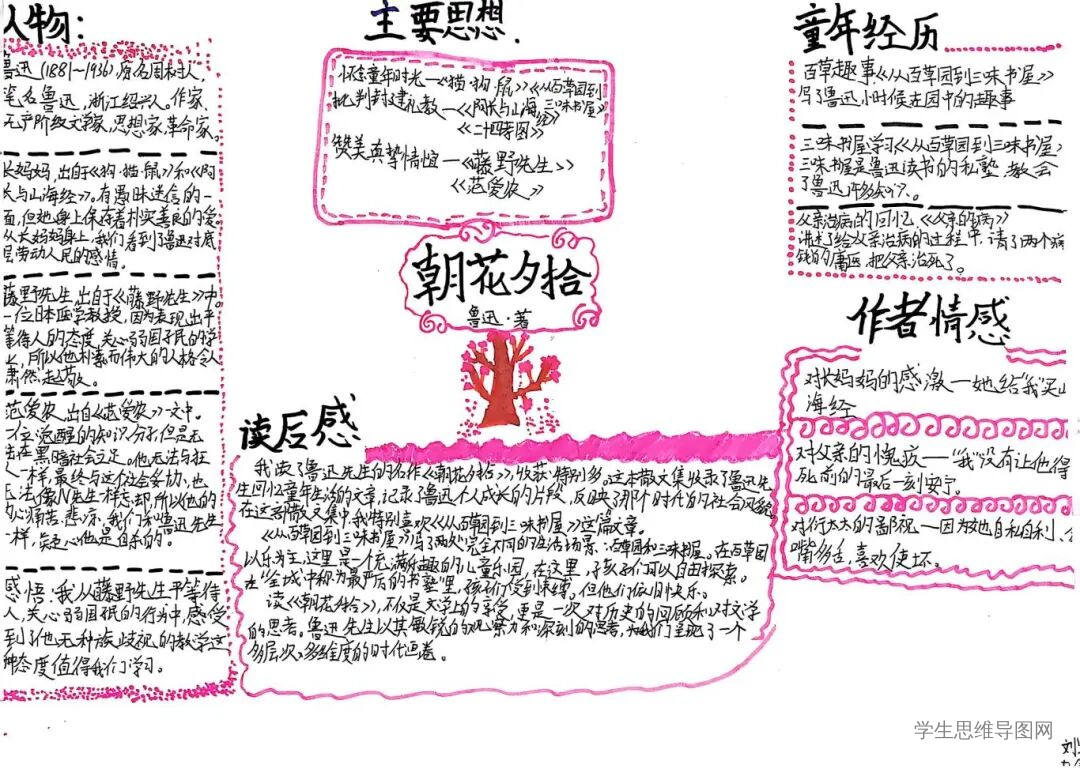 人物：
鲁迅(1881~1936)，原名周树人，
笔名鲁迅，浙江绍兴人。作家、
无产阶级文学家，思想家，革命家。
长妈妈，出自《狗·猫·鼠》和《阿
长与山海经》。有愚昧迷信的一
面，但她身上保存着朴实善良的爱。
从长妈妈身上，我们看到了鲁迅对底
层劳动人民的感情。
藤野先生，出自于《藤野先生》中。
一位日本医学教授，因为表现出平
等待人的态度，关心弱国子民的学
，所以他朴素而伟大的人格令人
肃然起敬。
范爱农，出自《范爱农》一文中。
位觉醒的知识分子，但是无
在黑暗社会立足。他无法与狂
人一样，最终与这个社会妥协，也
无法像N先生样忘却，所以他的
内心痛苦、悲凉，我们和鲁迅先生
一样，他是自杀的。
感悟：我从藤野先生平等待
人，关心弱国民的行为中，感受
到了他无种族歧视的教学这
种态度值得我们学习。
主要思想.
怀念童年时光—《猫·狗·鼠》《从百草园到
三味书屋》
批判封建礼教—《阿长与山海经》
《二十四孝图》
赞美真挚情谊—《藤野先生》
《范爱农》
朝花夕拾
鲁迅·著
读后感
我读了鲁迅先生的名作《朝花夕拾》，收获特别多。这本散文集收录了鲁迅先
生回忆童年生活的文章，记录了鲁迅个人成长的片段，反映了那个时代的社会风貌。
在这部散文集中，我特别喜欢《从百草园到三味书屋》这篇文章。
《从百草园到三味书屋》写了两处完全不同的生活场景：百草园和三味书屋。在百草园
以乐为主，这里是一个充满乐趣的儿童乐园，在这里，孩子们可以自由探索。
在"全城中称为最严厉的书塾"里，孩子们受到束缚。但他们依旧快乐。
读《朝花夕拾》，不仅是文学上的享受，更是一次对历史的回顾和对文学
的思考。鲁迅先生以其敏锐的观察力和深刻的思考，为我们呈现了一个
多层次、多维度的时代画卷。
童年经历
百草趣事《从百草园到三味书屋》
写了鲁迅小时候在园中的趣事
三味书屋学习《从百草园到三味书屋》
三味书屋是鲁迅读书的私塾，教会
了鲁迅许多知识。
父亲治病的回忆《父亲的病》
讲述了给父亲治病的过程中，请了两个
的庸医，把父亲治死了。
作者情感
对长妈妈的感激—她给"我"买山
海经
对父亲的愧疚—"我"没有让他得
死前的最后一刻安宁。
对衍太太的鄙视—因为她自私自利、
嘴多舌，喜欢使坏。
学生思维导图网